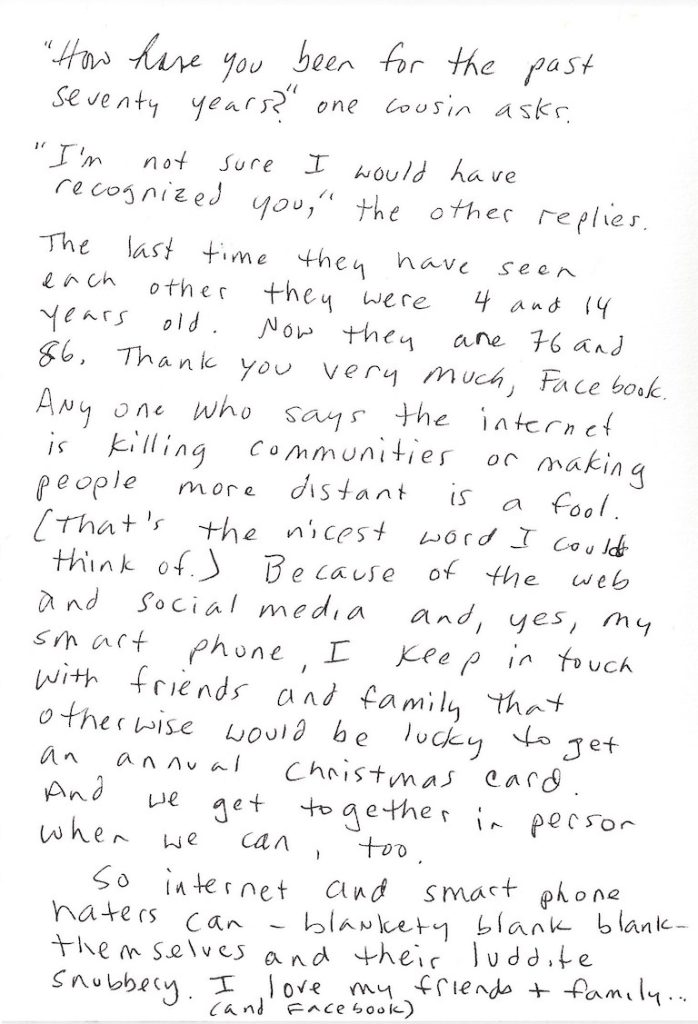 "How have you been for the past
seventy years?" one cousin asks.
"I'm not sure I would have
recognized you," the other replies.
The last time they have seen
each other they were 4 and 14
years old. Now they are 76 and
86. Thank you very much, Facebook.
Any one who says the internet
is killing communities or making
people more distant is a fool.
(That's the nicest word I could
think of.) Because of the web
and social media and, yes, my
smart phone, I keep in touch
with friends and family that
otherwise would be lucky to get
an annual Christmas card.
And we get together in person
when we can, too.
So internet and smart phone
haters can - blankety blank blank-
themselves and their luddite
snubbery. I love my friends + family...
(and Facebook)